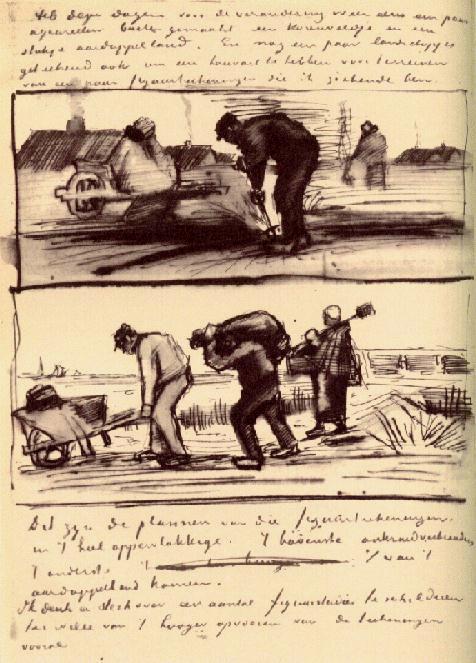 Heb dezer dagen voor de verandering weer eens een paar
aquarellen buiten gemaakt een korenveldje en een
stukje aardappelland. En nog een paar landschapjes
geteekend ook om een houvast te hebben voor terreinen
van een paar figuurteekeningen die ik zoekende ben.
Dit zijn de plannen van die figuurteekeningen.
in 't heel oppervlakkige. 't bovenste onkruidverbranders
't onderste 't van 't
aardappelland komen.
Ik denk er sterk over een aantal figuurstudies te schilderen
ter wille van 't hooger opvoeren van de teekeningen
vooral